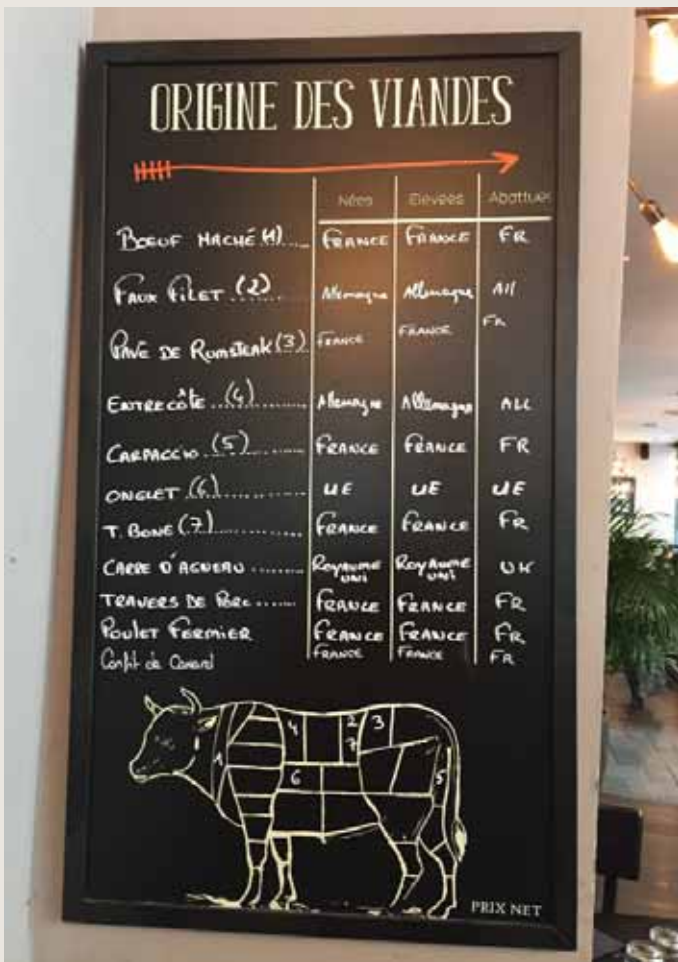 ORIGINE DES VIANDES
Nées Elevées Abattues
BOEUF HACHÉ (1)...... FRANCE FRANCE FR
FAUX FILET (2)....... Allemagne Allemagne All
PAVÉ DE RUMSTEAK (3).... FRANCE FRANCE FR
ENTRECÔTE (4)........ Allemagne Allemagne ALL
CARPACCIO (5)......... FRANCE FRANCE FR
ONGLET (6)........... UE UE UE
T. BONE (7)........... FRANCE FRANCE FR
CARRE D'AGNEAU ....... ROYAUME UNI ROYAUME UNI UK
TRAVERS DE PORC ..... FRANCE FRANCE FR
POULET FERMIER FRANCE FRANCE FR
Confit de Canard FRANCE FRANCE FR
4 2 3
1 7
6 5
PRIX NET